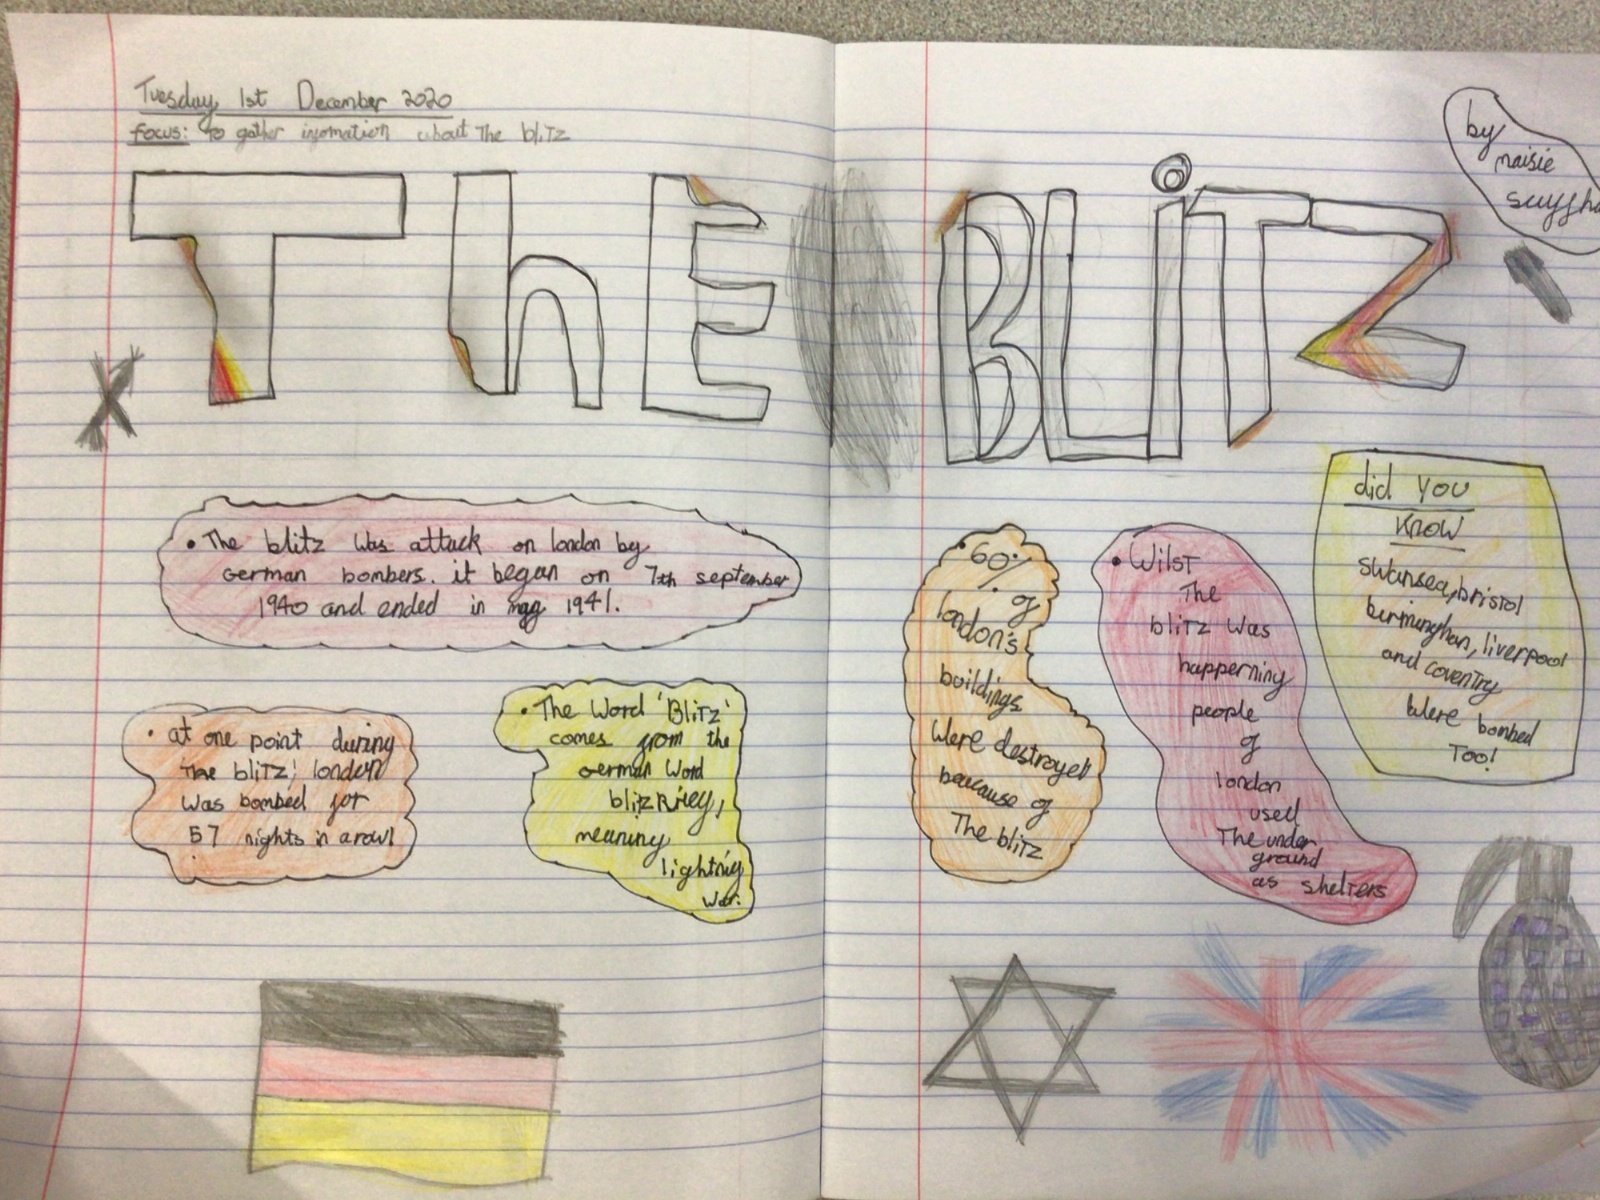 Tuesday 1st December 2020
focus: To gather infomation about The bliTZ
ThE BLiTZ
by
maisie
• The blitz was attack on london by
German bombers. it began on 7th september
1940 and ended in may 1941.
• at one point during
'The bliTZ', london
was bombed for
57 nights in a row!
• The Word 'BliTZ'
comes from the
German Word
meaning
lightnig
war.
• 60%
of
london's
buildings
Were destroyed
because of
The bliTZ
• Wilst
The
bliTZ was
happerning
people
of
london
used
The under
ground
as shelters
did YOU
KNOW
swansea, bristol
birminghan, liverpool
and coventry
Were bombed
Too!